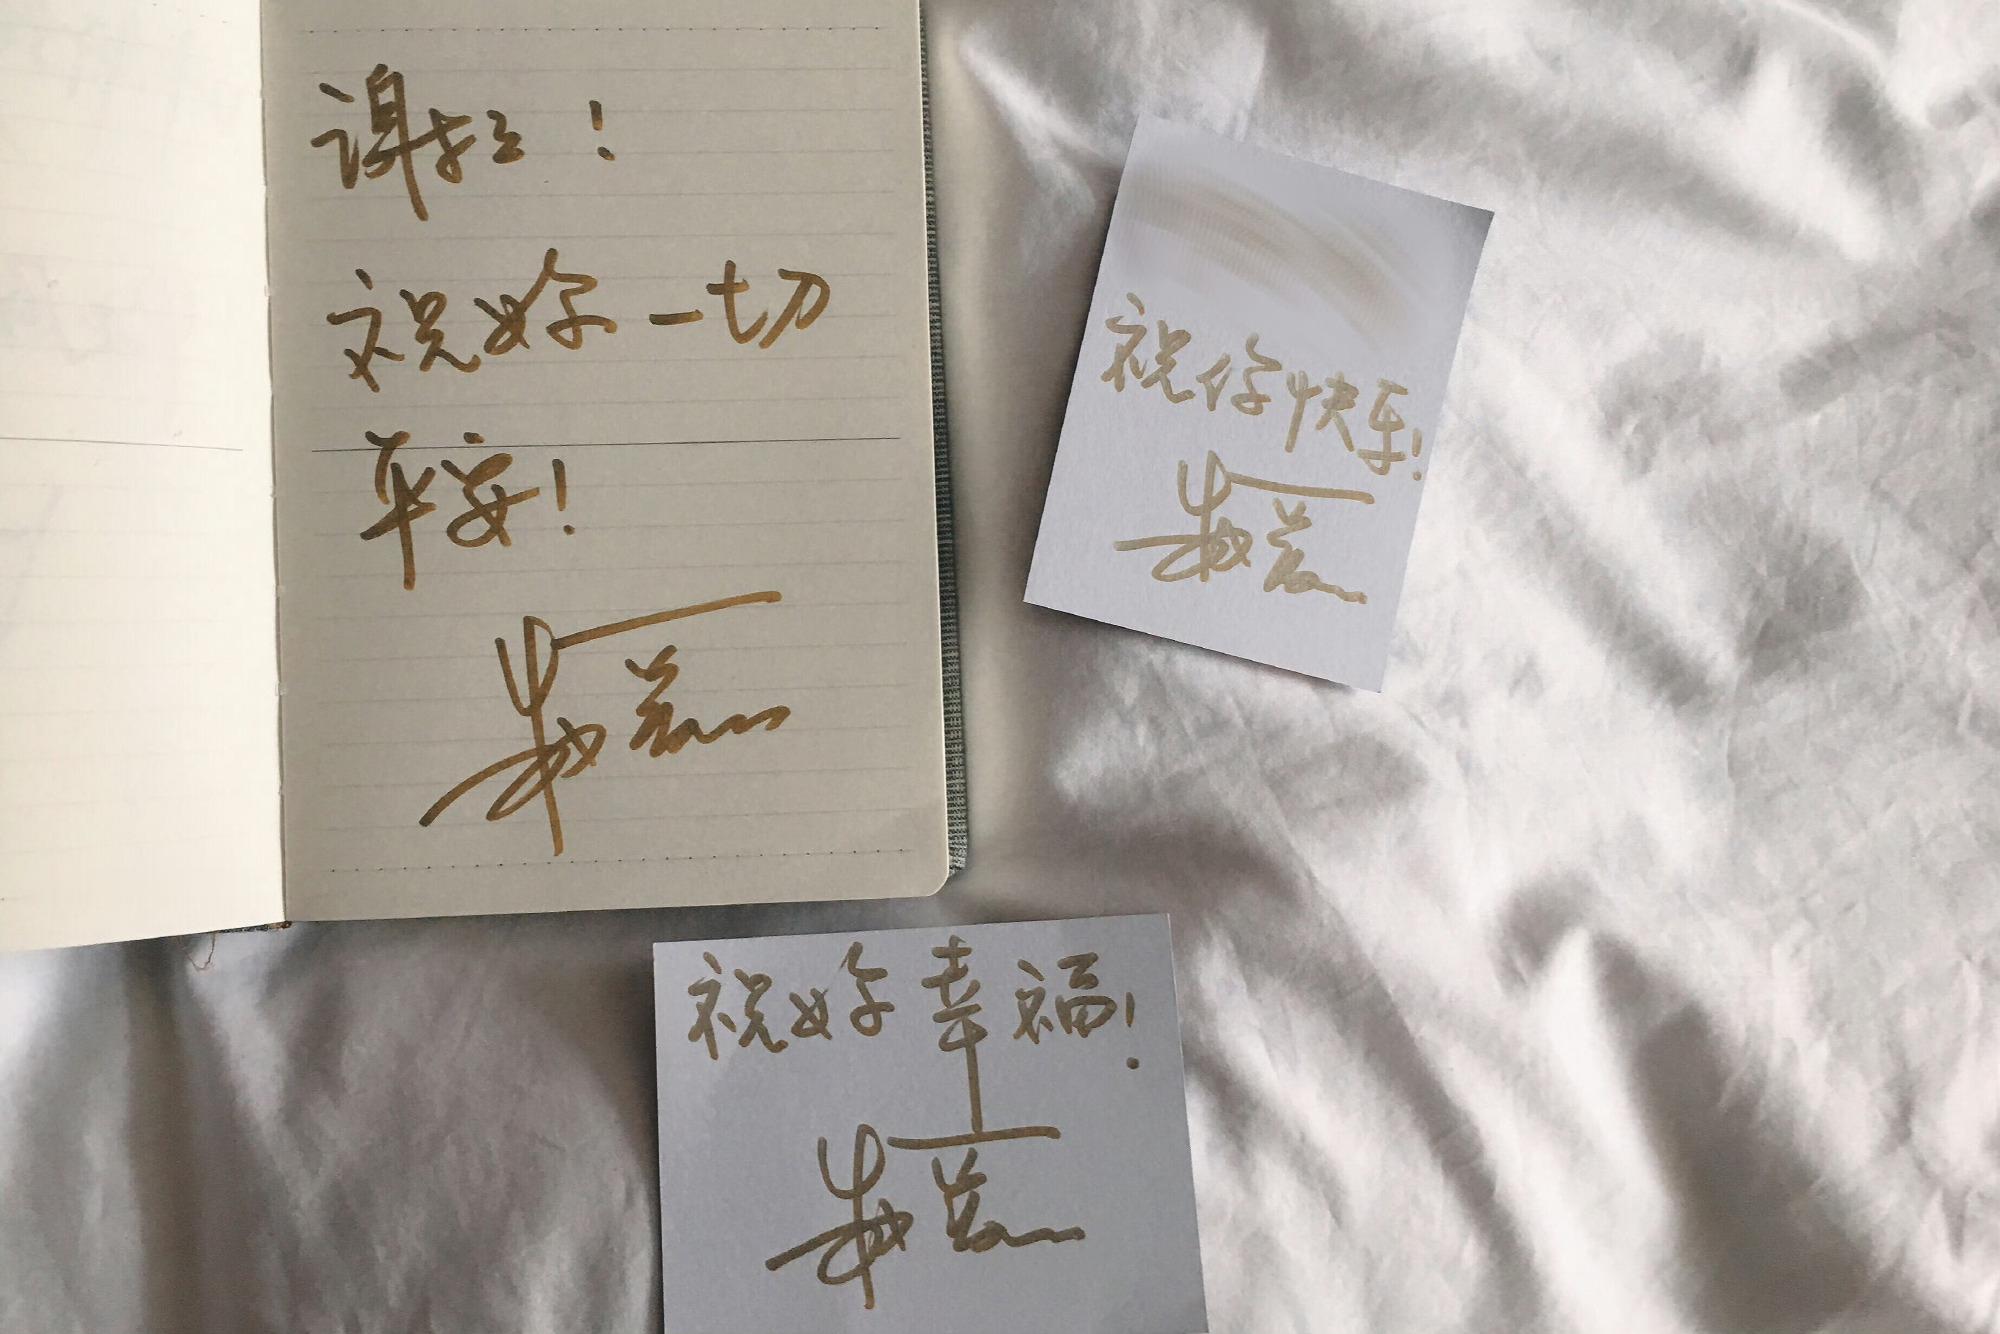 谢谢！
祝好一切
平安！
祝你快乐！
祝好幸福！